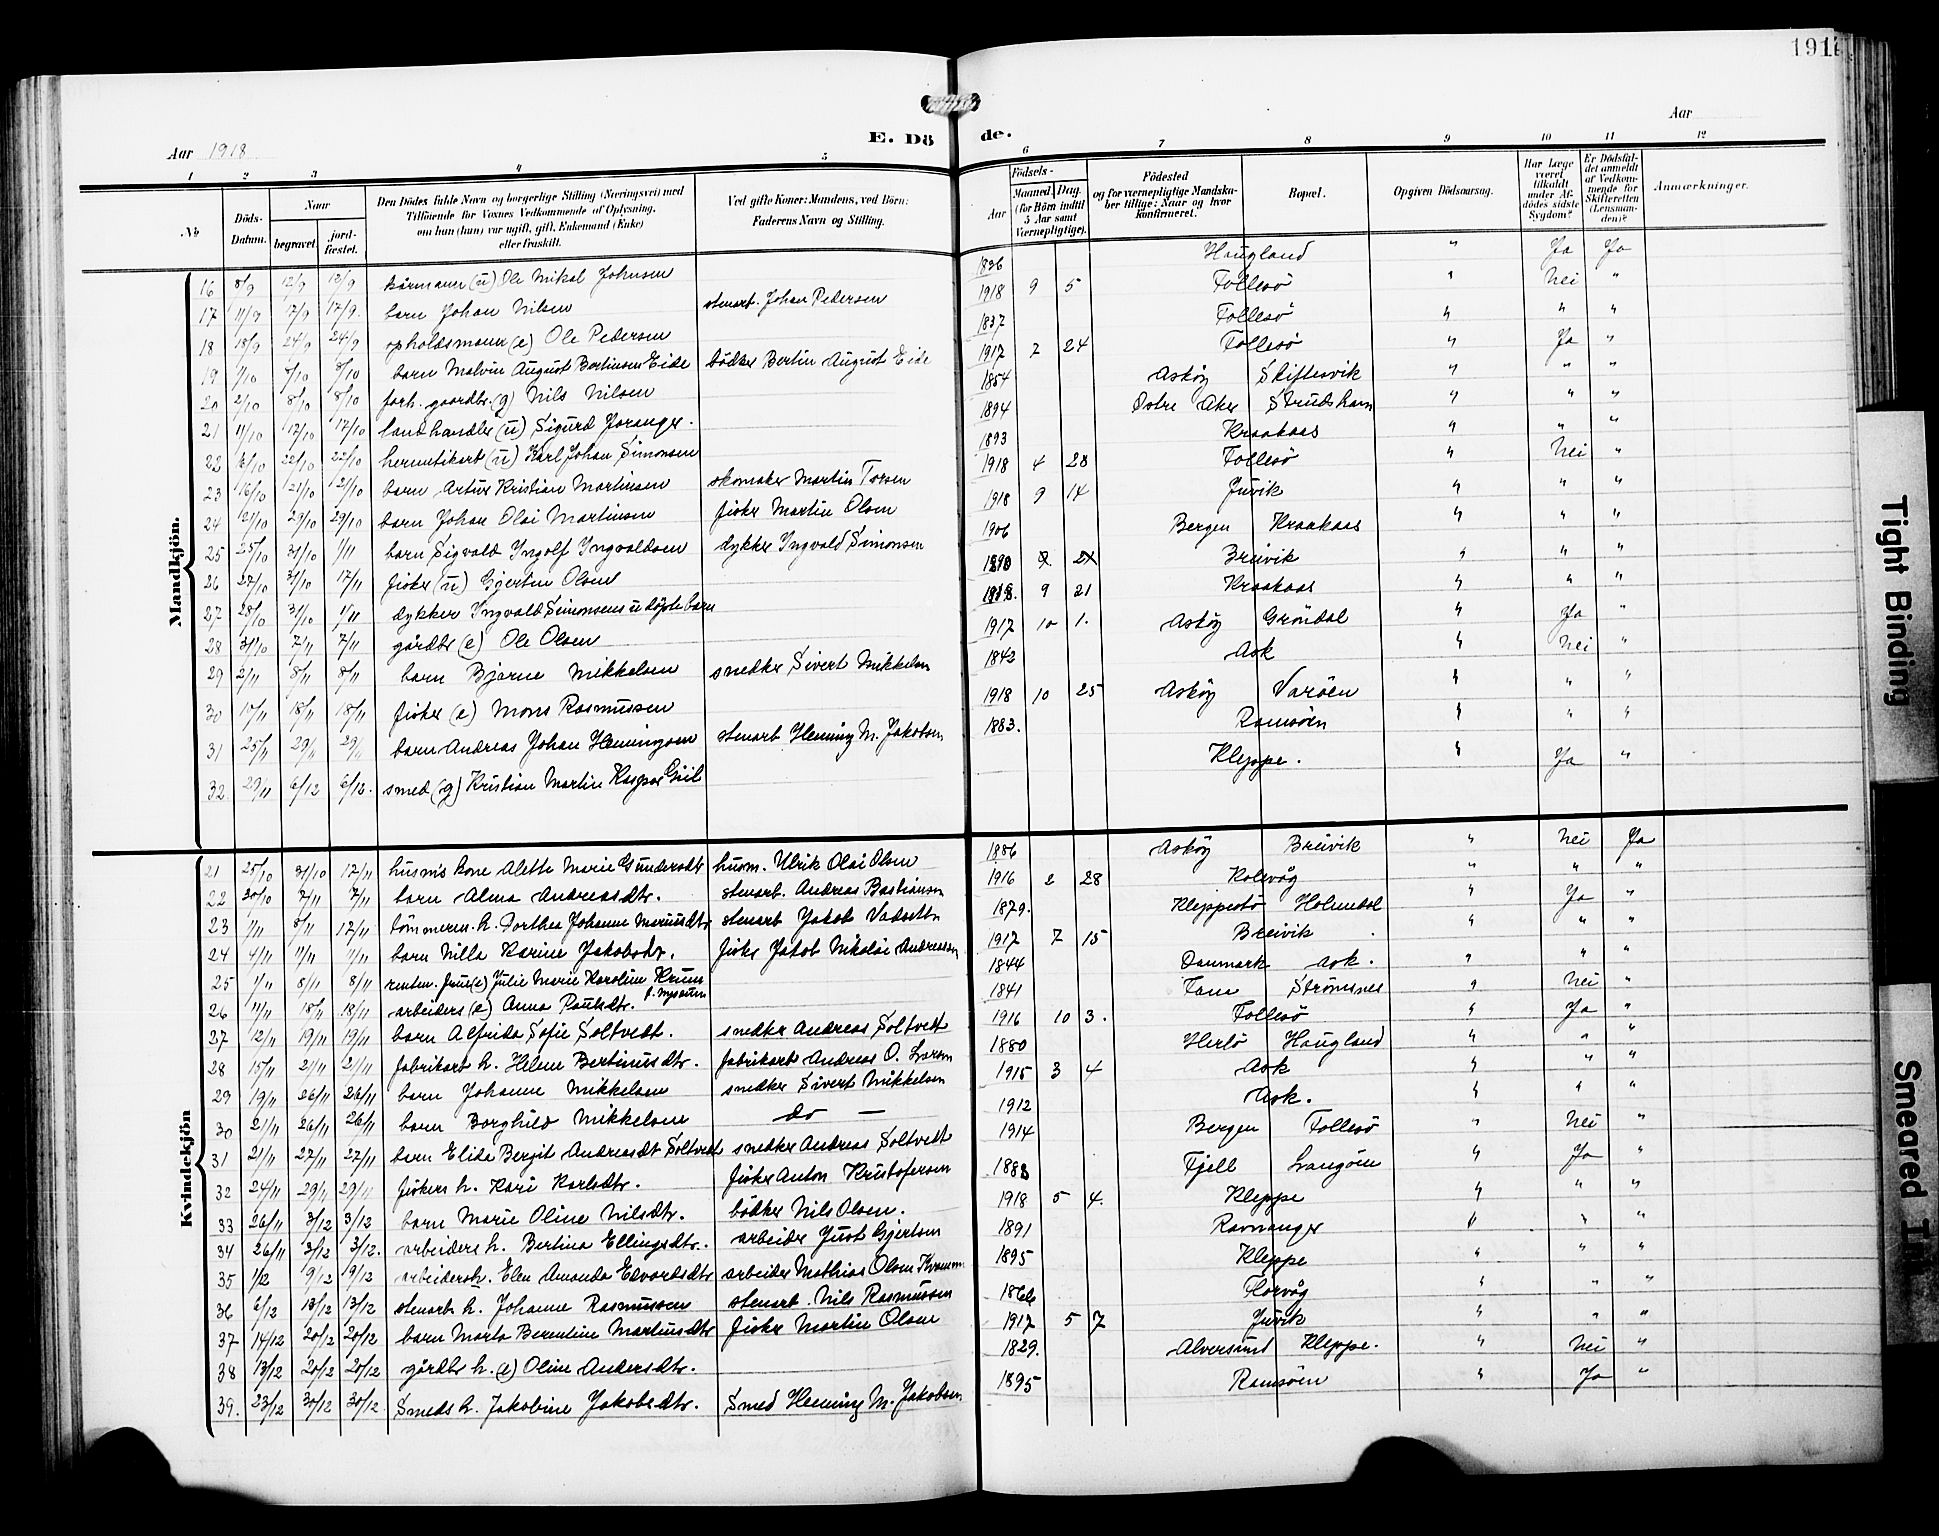 191
Aar 1918
E. Dö
de.
Aar
1 2 3 4 5 6 7 8 9 10 11 12
No
Döds-Datum.
Naar
begravet.
jord-fæstet.
Den Dödes fulde Navn og borgerlige Stilling (Næringsvei) med Tilföiende for Voxnes Vedkommende af Oplysning, om han (hun) var ugift, gift, Enkemand (Enke) eller fraskilt.
Ved gifte Koner: Mandens, ved Börn: Faderens Navn og Stilling.
Födsels-
Aar
Maaned. Dag.
(for Börn indtil 5 Aar samt Værnepligtige).
Födested og for værnepligtige Mandskaber tillige: Naar og hvor konfirmeret.
Bopæl.
Opgiven Dödsaarsag.
Har Læge været tilkaldt under Afdödes sidste Sygdom?
Er Dödsfaldet anmeldt af Vedkommende for Skifteretten (Lensmanden)?
Anmærkninger.
Mandkjön.
16 8/9 12/9 12/9 kårmann (u) Ole Mikal Johnsen 1836 Haugland " Ja Ja
17 11/9 17/9 17/9. barn Johan Nilsen stenarb. Johan Pedersen 1918 9 5 Follesö " Nei "
18 18/9 24/9 24/9 opholdsmann (e) Ole Pedersen 1837 Follesö " " "
19 1/10 7/10 8/10 barn Malvin August Bertinsen Eide bödker Bertin August Eide 1917 7 24 Follesö " Ja "
20 2/10 8/10 8/10 forh. gaardbr. (g) Nils Nilsen 1854 Asköy Skiftesvik " " "
21 11/10 17/10 17/10 landhandler (u) Sigurd Joranger. 1894 Östre Aker Strudshavn " " "
22 16/10 22/10 22/10 hermetikarb (u) Karl Johan Simonsen 1893 Kraakaas " " "
23 16/10 21/10 21/10 barn Artur Kristian Martinsen skomaker Martin Tresen 1918 4 28 Follesö " Nei "
24 21/10 29/10 29/10 barn Johan Olai Martinsen fisker Martin Olsen 1918 9 14 Juvik " " "
25 25/10 31/10 1/11 barn Sigvald Ingolf Ingvaldsen dykker Ingvald Simonsen 1906 Bergen Kraakaas " " "
26 27/10 31/10 17/11 fisker (u) Gjertin Olsen 1890 Breivik " " "
27 28/10 31/10 1/11 dykker Ingvald Simonsens udöpte barn 1918. 9 21 Kraakaas " " "
28 31/10 7/11 7/11 gårdbr (e) Ole Olsen 1917 10 1. Asköy Gröndal " Ja "
29 2/11 8/11 8/11 barn Bjarne Mikkelsen snedker Sivert Mikkelsen 1842 Ask " Nei "
30 10/11 18/11 18/11 fisker (e) Mons Rasmussen 1918 10 25 Asköy Varöen " " "
31 25/11 29/11 29/11 barn Andreas Johan Henningsen stenarb Henning M. Jakobsen 1883. Ramsöen " " "
32 29/11 6/12 6/12. smed (g) Kristian Martin Kaspar Giil Kleppe. " Ja "
Kvindekjön
21 25/10 31/10 17/11 husm's kone Alette Marie Gundersdtr husm. Ulrik Olai Olsen 1886 Asköy Breivik " Nei Ja
22 30/10 7/11 7/11 barn Alma Andreasdtr. stenarb. Andreas Bastiansen 1916 2 28 Kolevåg " " "
23 1/11 8/11 17/11 tömmerm. h. Dorthea Johanne Monsdtr stenarb Jakob Vadsetten 1879. Kleppestö Holmedal " Ja "
24 4/11 11/11 11/11 barn Nilla Karine Jakobsdtr. fisker Jakob Nikolai Andreassen 1917 7 15 Breivik " " "
25 1/11 8/11 8/11 rentm. frue (e) Julie Marie Karoline Krum 1844 Danmark Ask. " " "
26 11/11 18/11 18/11 arbeiders (e) Anna Paulsdtr. 1841 Fane Strömsnes " Nei "
27 12/11 19/11 19/11 barn Alfrida Sofie Soltvedt. snedker Andreas Soltvedt 1916 10 3. Follesö " Ja "
28 15/11 21/11 21/11 fabrikarb h. Helene Bertinusdtr. fabrikarb Andreas O. Larsen 1880 Herlö Haugland " " "
29 19/11 26/11 26/11 barn Johanne Mikkelsen snedker Sivert Mikkelsen 1915 3 4 Ask " " "
30 21/11 26/11 26/11 barn Borghild Mikkelsen do — 1912 Ask. " " "
31 21/11 27/11 27/11 barn Elida Bergit Andreasdt Soltvedt snedker Andreas Soltvedt 1914 Bergen Follesö " Nei "
32 24/11 29/11 29/11 fiskers h. Kari Karlsdtr. fisker Anton Kristofersen 1888 Fjell Langöen " Ja "
33 26/11 3/12 3/12 barn Marie Oline Nilsdtr. bödker Nils Olsen. 1918 5 4. Kleppe " " "
34 26/11 3/12 3/12. arbeiders h. Bertina Ellingsdtr. arbeider Just Gjertsen 1891 Ravnanger " " "
35 1/12 9/12 9/12 arbeidersh. Elen Amanda Edvardsdtr arbeider Mathias Olsen Kvamm 1895 Kleppe " " "
36 6/12 13/12 13/12 stenarb. h. Johanne Rasmussen stenarb. Nils Rasmussen 1866 Florvåg " " "
37 14/12 20/12 20/12 barn Marta Berentine Martinsdtr fisker Martin Olsen 1917 5 7 Juvik " " "
38 13/12 20/12 20/12 gårdbr h. (e) Oline Andersdtr. 1829. Alversund Kleppe. " Nei "
39. 23/12 30/12 30/12. Smeds h. Jakobine Jakobsdtr. Smed Henning M. Jakobsen 1895 Ramsöen " Ja "
Tight Binding
Smeared Ink